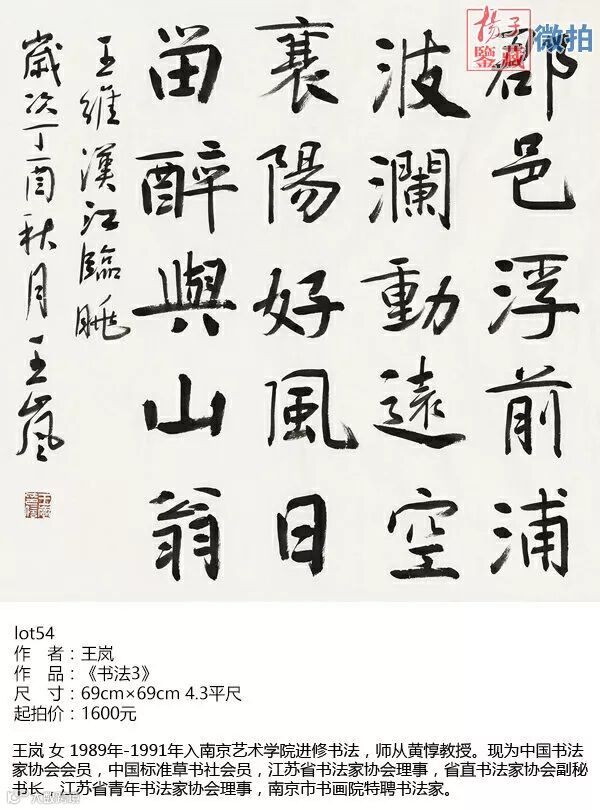 揚子
鑒藏
微拍
郡邑浮前浦
波瀾動遠空
襄陽好風日
留醉與山翁
王維漢江臨眺
歲次丁酉秋月王嵐
lot54
作 者：王岚
作 品：《书法3》
尺 寸：69cm×69cm 4.3平尺
起拍价：1600元
王岚 女 1989年-1991年入南京艺术学院进修书法，师从黄惇教授。现为中国书法
家协会会员，中国标准草书社会员，江苏省书法家协会理事，省直书法家协会副秘
书长，江苏省青年书法家协会理事，南京市书画院特聘书法家。